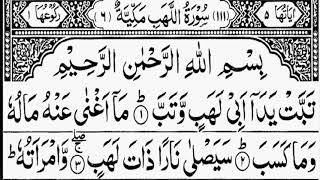 اٰیَاتُهَا ٥ (١١١) سُوْرَةُ اللَّهَبِ مَكِّیَّةٌ (٦) رُكُوْعُهَا ١
بِسْمِ اللّٰهِ الرَّحْمٰنِ الرَّحِیْمِ
تَبَّتْ یَدَاۤ اَبِیْ لَهَبٍ وَّتَبَّ ؕ﴿۱﴾ مَاۤ اَغْنٰی عَنْهُ مَالُهٗ
وَمَا كَسَبَ ؕ﴿۲﴾ سَیَصْلٰی نَارًا ذَاتَ لَهَبٍ ﴿ۚۖ۳﴾ وَّامْرَاَتُهٗ ؕ